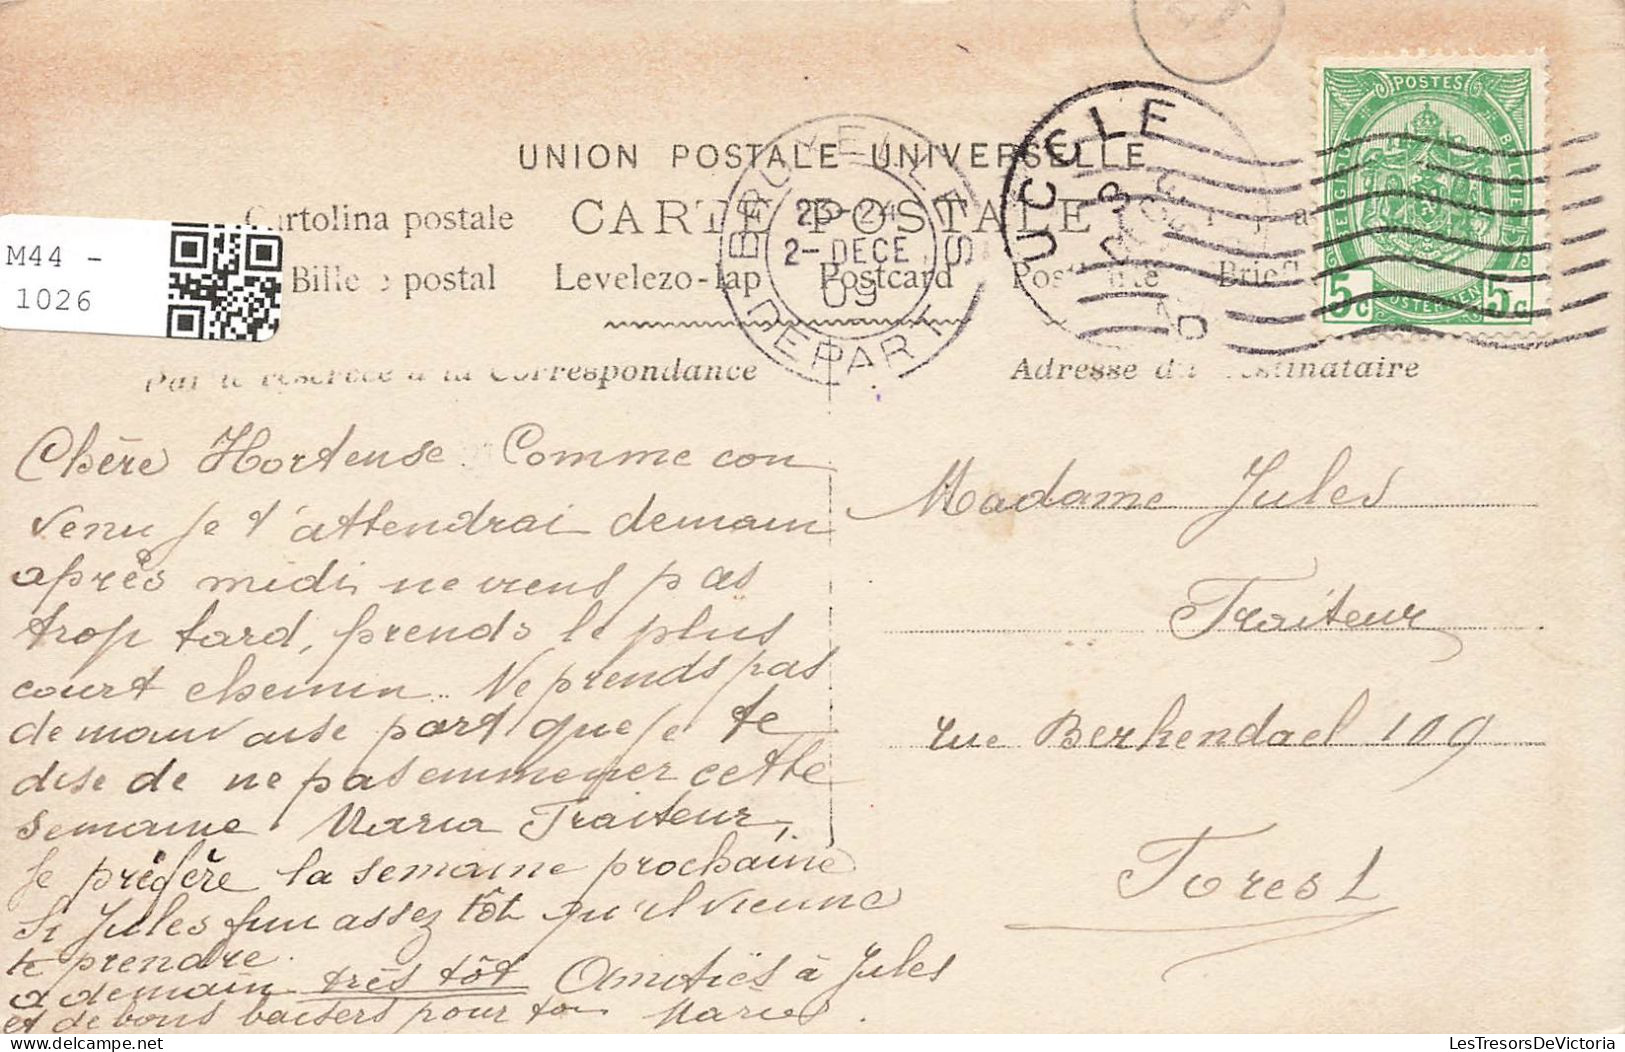 UNION POSTALE UNIVERSELLE
Cartolina postale CARTE POSTALE
postal Levelezo-lap Postcard
Par te réservée à la Correspondance
Adresse du Destinataire
M44 -
1026
BRUXELLES
23-24
2-DECE
09
DEPART
UCCLE
POSTES
BELGIQUE
BELGIE
5c
POSTERIJEN
5c
Chère Hortense. Comme con
venu je t'attendrai demain
après midi ne viens pas
trop tard, prends le plus
court chemin.. Ne prends pas
de mauvaise part que je te
dise de ne pas emmener cette
semaine Maria Traiteur,
Je préfère la semaine prochaine
Si Jules fini assez tôt qu'il vienne
te prendre.
a demain très tôt Amitiés à Jules
et de bons baisers pour toi
Madame Jules
Traiteur
rue Berkendael 109
Forest
LesTresorsDeVictoria
LesTresorsDeVictoria.delcampe.net